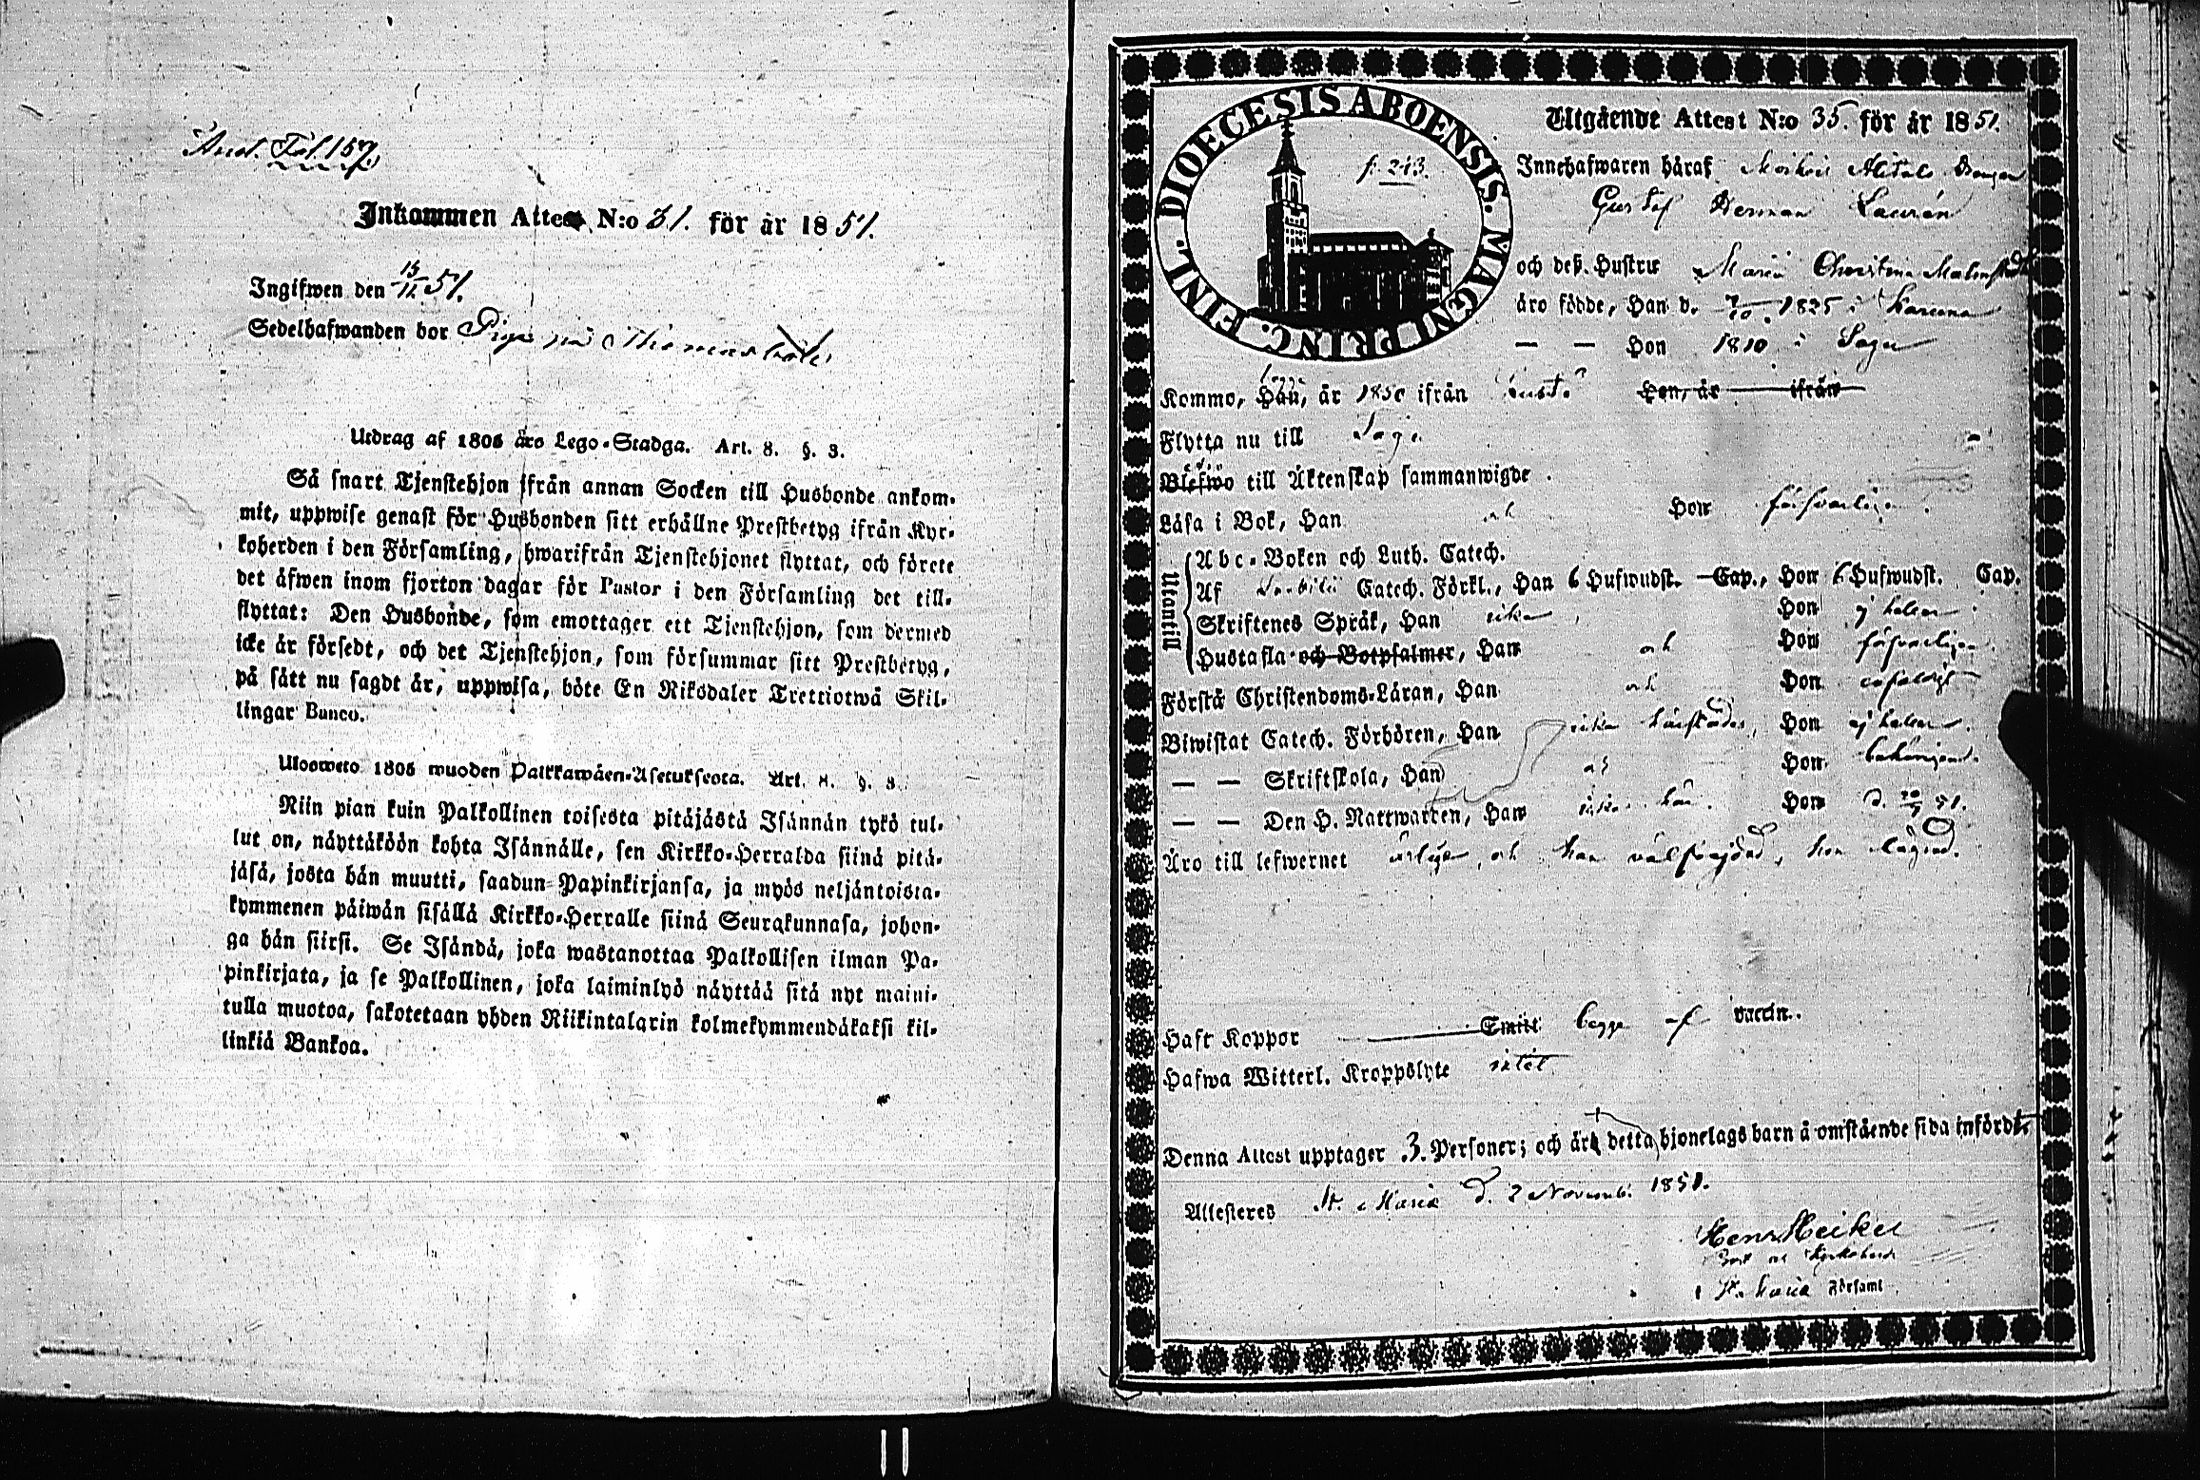 Fol. 157.
Inkommen Attest N:o 31. för år 1851.
Ingifwen den 15/11 51.
Sedelhafwanden bor Piga på
Utdrag af 1805 års Lego-Stadga. Art. 8. §. 3.
Så snart Tjenstehjon ifrån annan Socken till Husbonde ankom-
mit, uppwise genast för Husbonden sitt erhållne Prestbetyg ifrån Kyr-
koherden i den Församling, hwarifrån Tjenstehjonet flyttat, och förete
det äfwen inom fjorton dagar för Pastor i den Församling det till-
flyttat: Den Husbonde, som emottager ett Tjenstehjon, som dermed
icke är försedt, och det Tjenstehjon, som försummar sitt Prestbetyg,
på sätt nu sagdt är, uppwisa, böte En Riksdaler Trettiotwå Skil-
lingar Banco.
Ulosweto 1805 wuoden Palkkawäen-Asetuksesta. Art. 8. §. 3.
Niin pian kuin Palkollinen toisesta pitäjästä Isännän tykö tul-
lut on, näyttäköön kohta Isännälle, sen Kirkko-Herralda siinä pitä-
jäsä, josta hän muutti, saadun Papinkirjansa, ja myös neljäntoista-
kymmenen päiwän sisällä Kirkko-Herralle siinä Seurakunnasa, johon-
ga hän siirsi. Se Isändä, joka wastanottaa Palkollisen ilman Pa-
pinkirjata, ja se Palkollinen, joka laiminlyö näyttää sitä nyt maini-
tulla muotoa, sakotetaan yhden Riikintalarin kolmekymmendäkaksi kil-
linkiä Bankoa.
DIOECESIS ABOENSIS. MAGNI PRINC. FINL.
f. 243.
Utgående Attest N:o 35. för år 1851.
Innehafwaren häraf Alitalo Drängen
Gustaf Herman Laurén
och deß Hustru Maria Christina
äro födde, Han d. 7/10 1825 i Karuna
— — Hon 1810 i Sagu
Kommo, Han, år 1850 ifrån Kustö Hon, år ifrån
Flytta nu till Sagu
Blefwo till Äktenskap sammanwigde
Läsa i Bok, Han och Hon försvarligen.
Utantill
Abc-Boken och Luth. Catech.
Af Catech. Förkl., Han 6 Hufwudst. Cap., Hon 6 Hufwudst. Cap.
Skriftenes Språk, Han Hon ej heller
Hustafla och Botpsalmer, Han och Hon försvarligen
Förstå Christendoms-Läran, Han och Hon enfaldigt
Biwistat Catech. Förhören, Han Hon ej heller.
— — Skriftskola, Han och Hon behörigen.
— — Den H. Nattwarden, Han Hon d. 51.
Äro till lefwernet ärlige, och han hon
Haft Koppor Emist begge af vaccin.
Hafwa Witterl. Kroppslyte intet
Denna Attest upptager 3. Personer; och äro detta hjonelags barn å omstående sida införde.
Attesteras St. Maria d. 2 Novemb. 1851.
Henr. Heikel
Prost och Kyrkoherde
i St. Maria Församl.